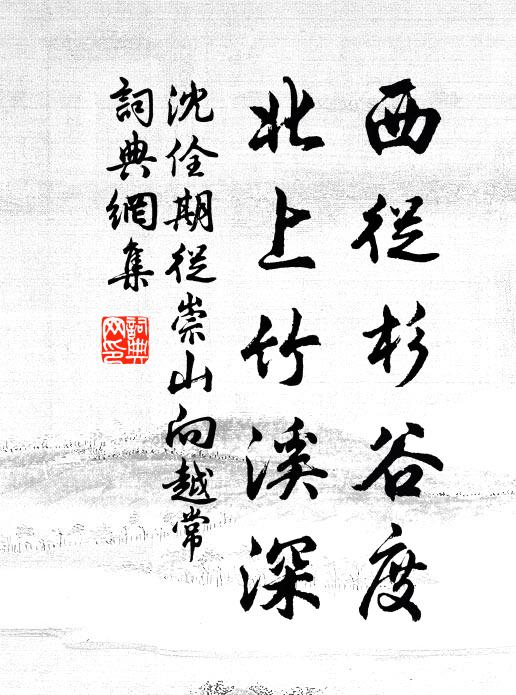 西從杉谷度
北上竹溪深
沈佺期從崇山向越常
詞典網集
詞典
网印